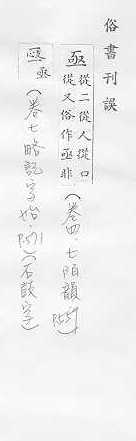 俗書刊誤
亟從二從人從口
從又俗作亟非
(卷四.七陌韻
P.557)
亟亟
(卷七略記字始,
P.571)(石鼓字)